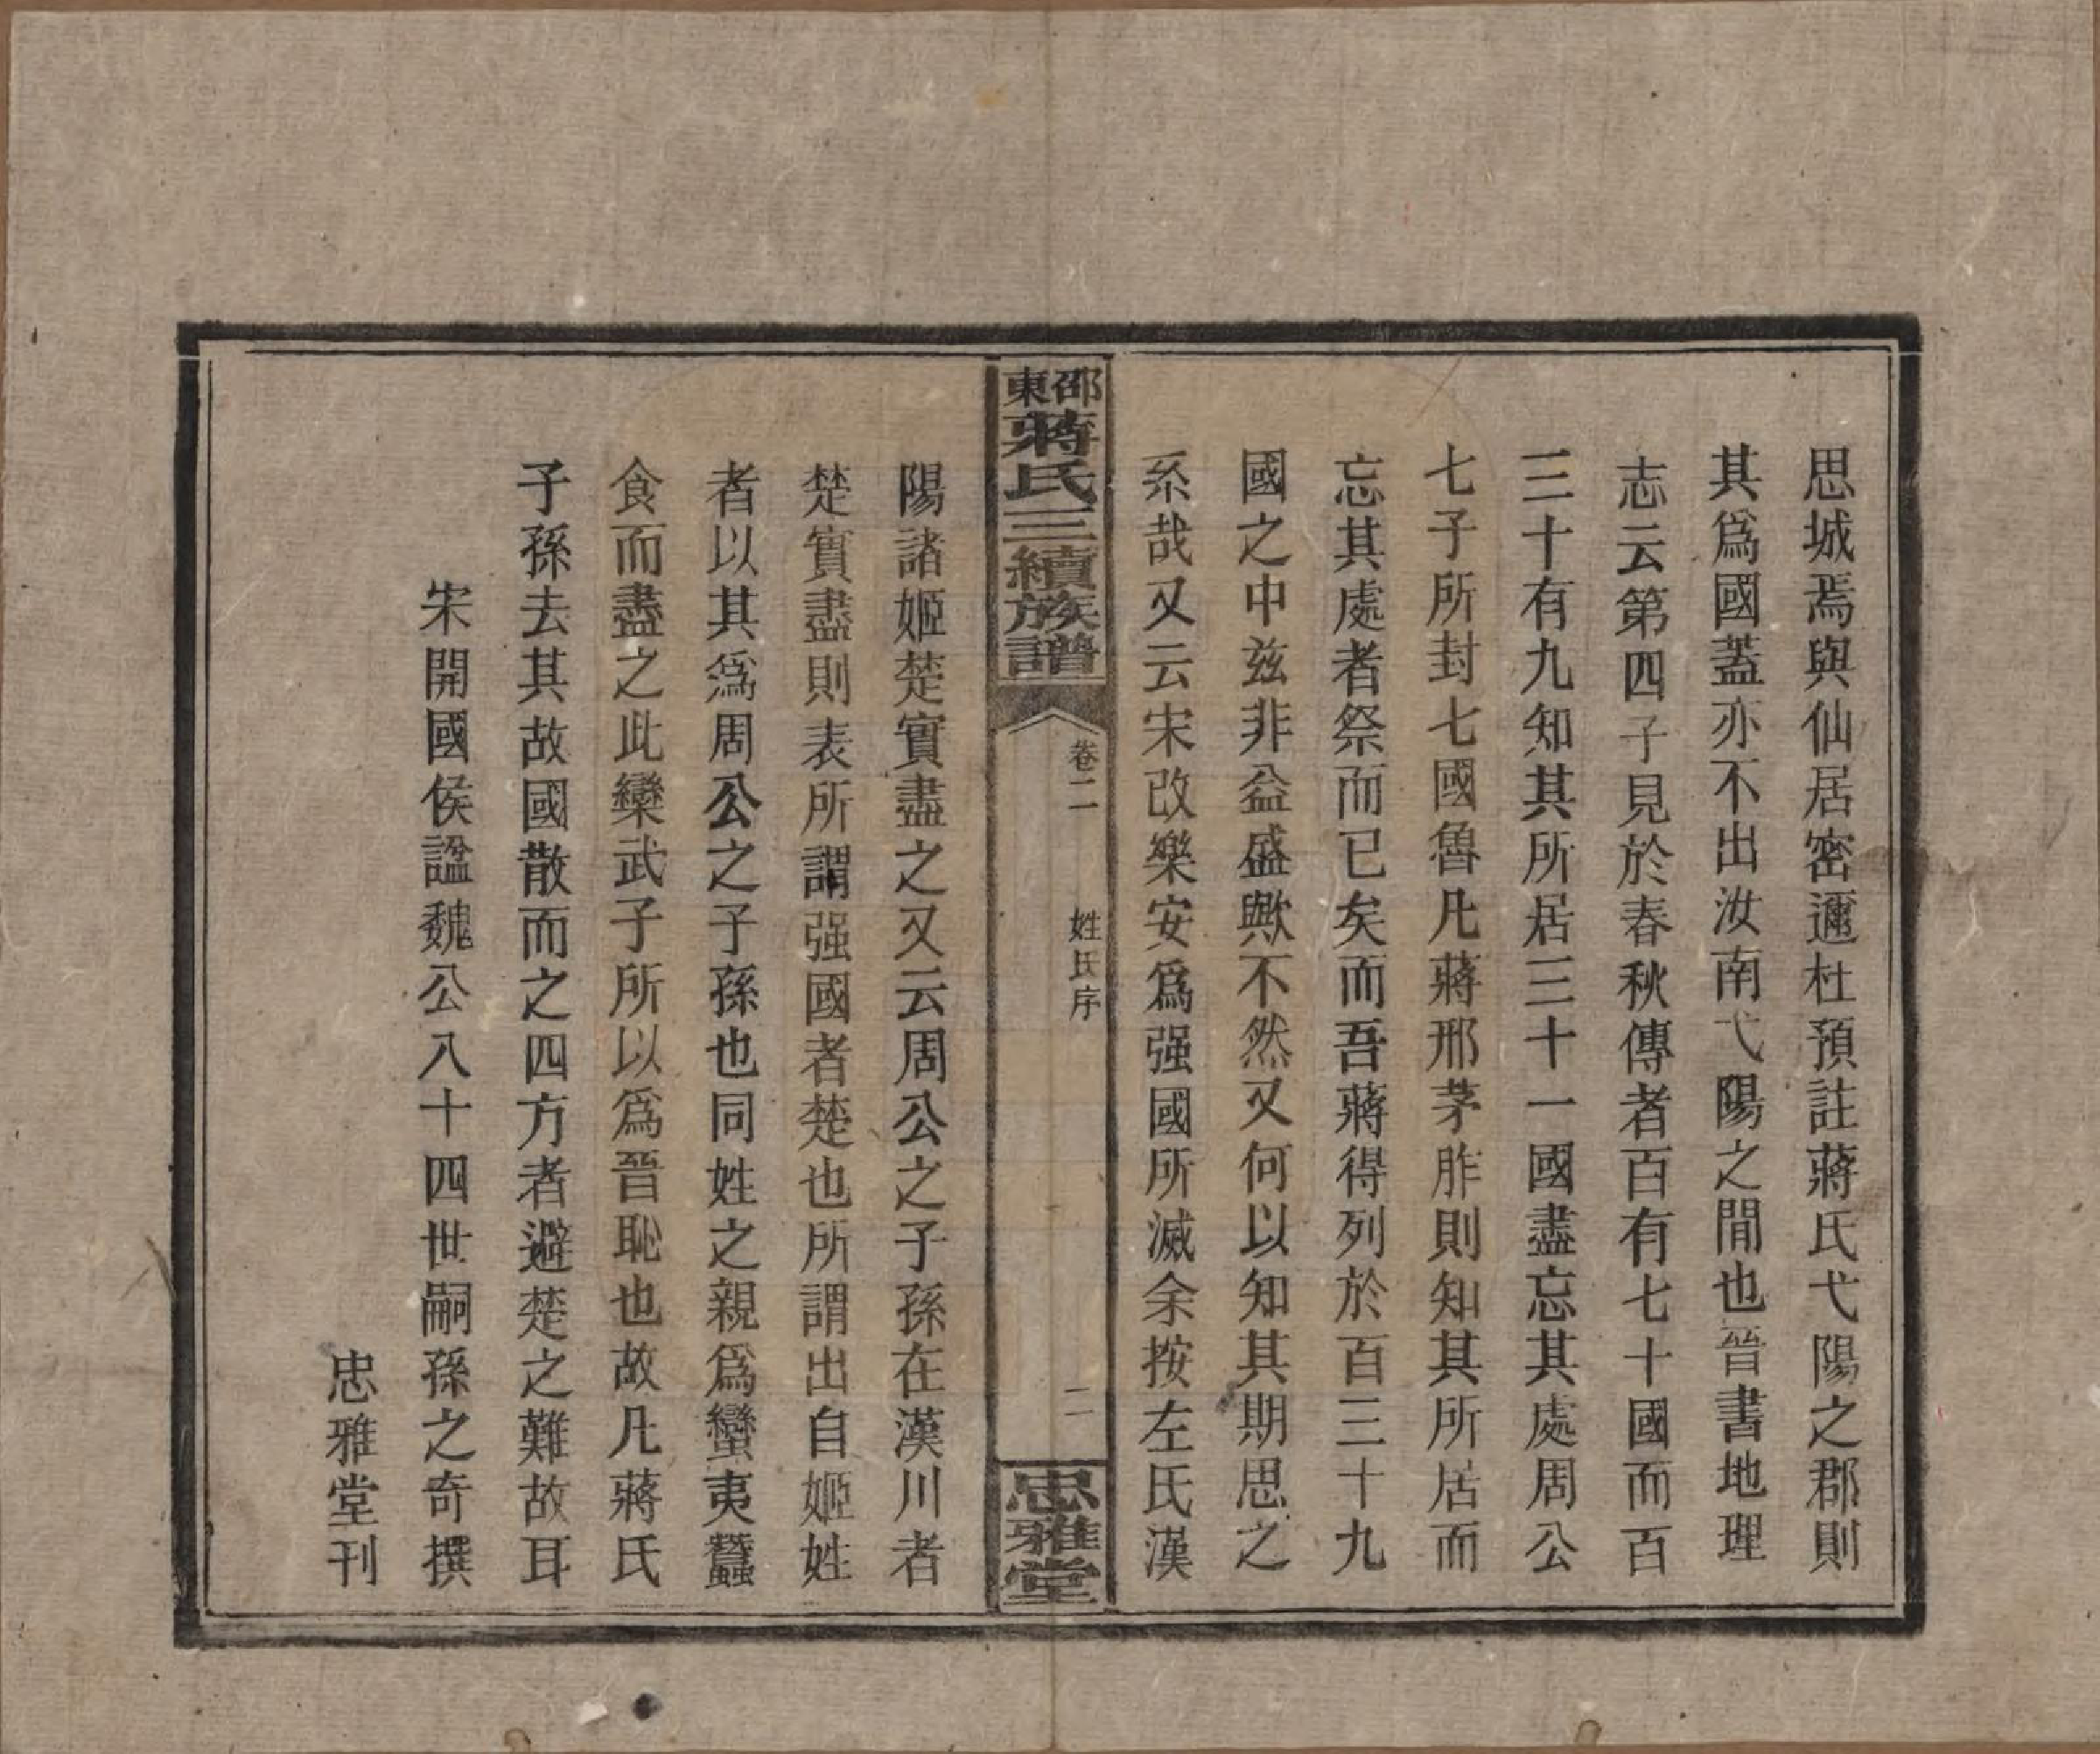 思城焉與仙居密邇杜預註蔣氏弋陽之郡則
其爲國蓋亦不出汝南弋陽之閒也晉書地理
志云第四子見於春秋傳者百有七十國而百
三十有九知其所居三十一國盡忘其處周公
七子所封七國魯凡蔣邢茅胙則知其所居而
忘其處者祭而已矣而吾蔣得列於百三十九
國之中兹非益盛歟不然又何以知其期思之
系哉又云宋改樂安爲强國所滅余按左氏漢
邵東蔣氏三續族譜
卷二
姓氏序
二
忠雅堂
陽諸姬楚實盡之又云周公之子孫在漢川者
楚實盡則表所謂强國者楚也所謂出自姬姓
者以其爲周公之子孫也同姓之親爲蠻夷蠶
食而盡之此欒武子所以爲晉恥也故凡蔣氏
子孫去其故國散而之四方者避楚之難故耳
宋開國侯諡魏公八十四世嗣孫之奇撰
忠雅堂刊